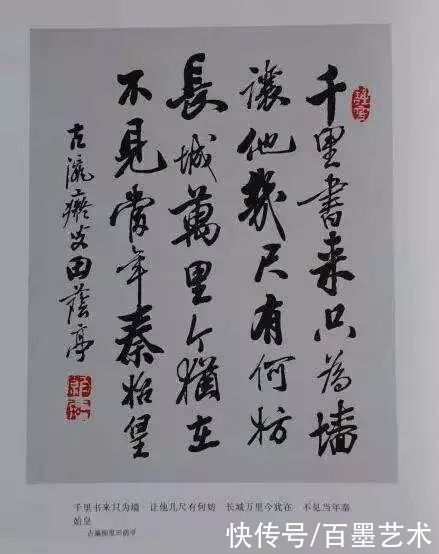 千里書来只為墻
讓他幾尺有何妨
長城萬里今猶在
不見當年秦始皇
古瀛癡叟田蔭亭
千里书来只为墙 让他几尺有何妨 长城万里今犹在 不见当年秦
始皇
古瀛痴叟田荫亭
快传号/百墨艺术